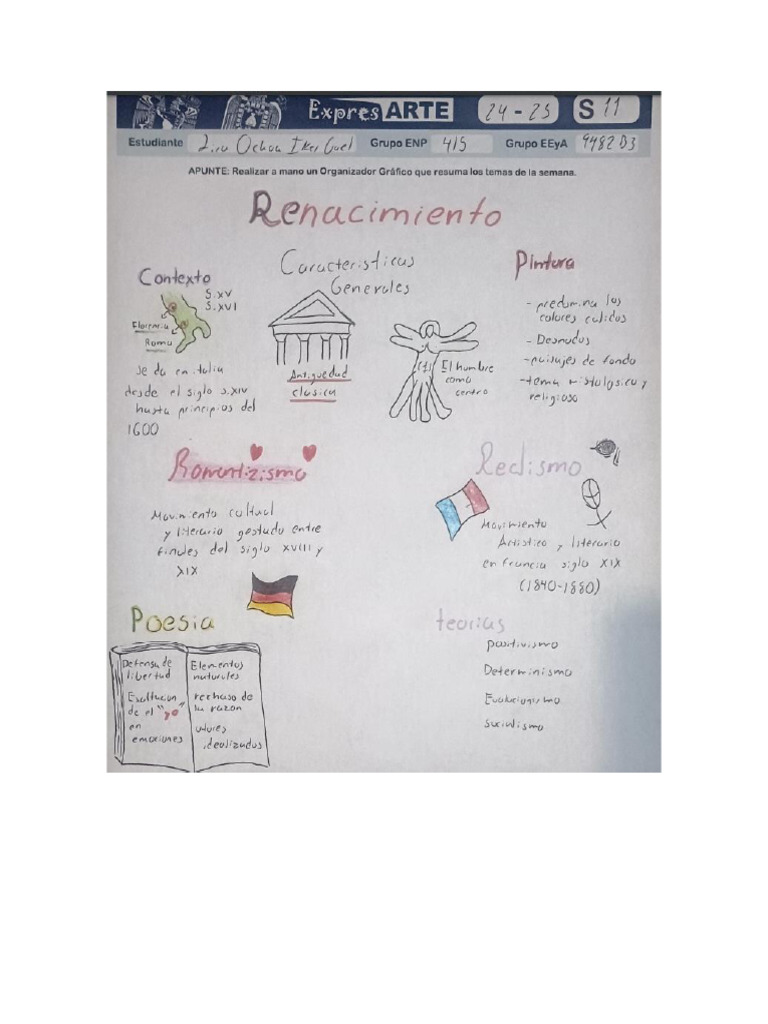 ExpresARTE 24-25 S 11
Estudiante Ochoa Iker Gael Grupo ENP 415 Grupo EEyA 9482 D3
APUNTE: Realizar a mano un Organizador Gráfico que resuma los temas de la semana.
Renacimiento
Contexto
S. XV
S. XVI
Florencia
Roma
se da en italia
desde el siglo s.XIV
hasta principios del
1600
Caracteristicas
Generales
Antiguedad
clasica
El hombre
como
centro
Pintura
- predomina los
colores calidos
- Desnudos
- paisajes de fondo
- tema mitologico y
religioso
Romantizismo
Movimiento cultual
y literario gestado entre
finales del siglo XVIII y
XIX
Realismo
Movimiento
Artistico y literario
en francia siglo XIX
(1840-1880)
Poesia
Defensa de
libertad
Exaltacion
de el "yo"
en
emociones
Elementos
naturales
rechaso de
la razon
valores
idealizados
teorias
positivismo
Determinismo
Evolucionismo
Socialismo